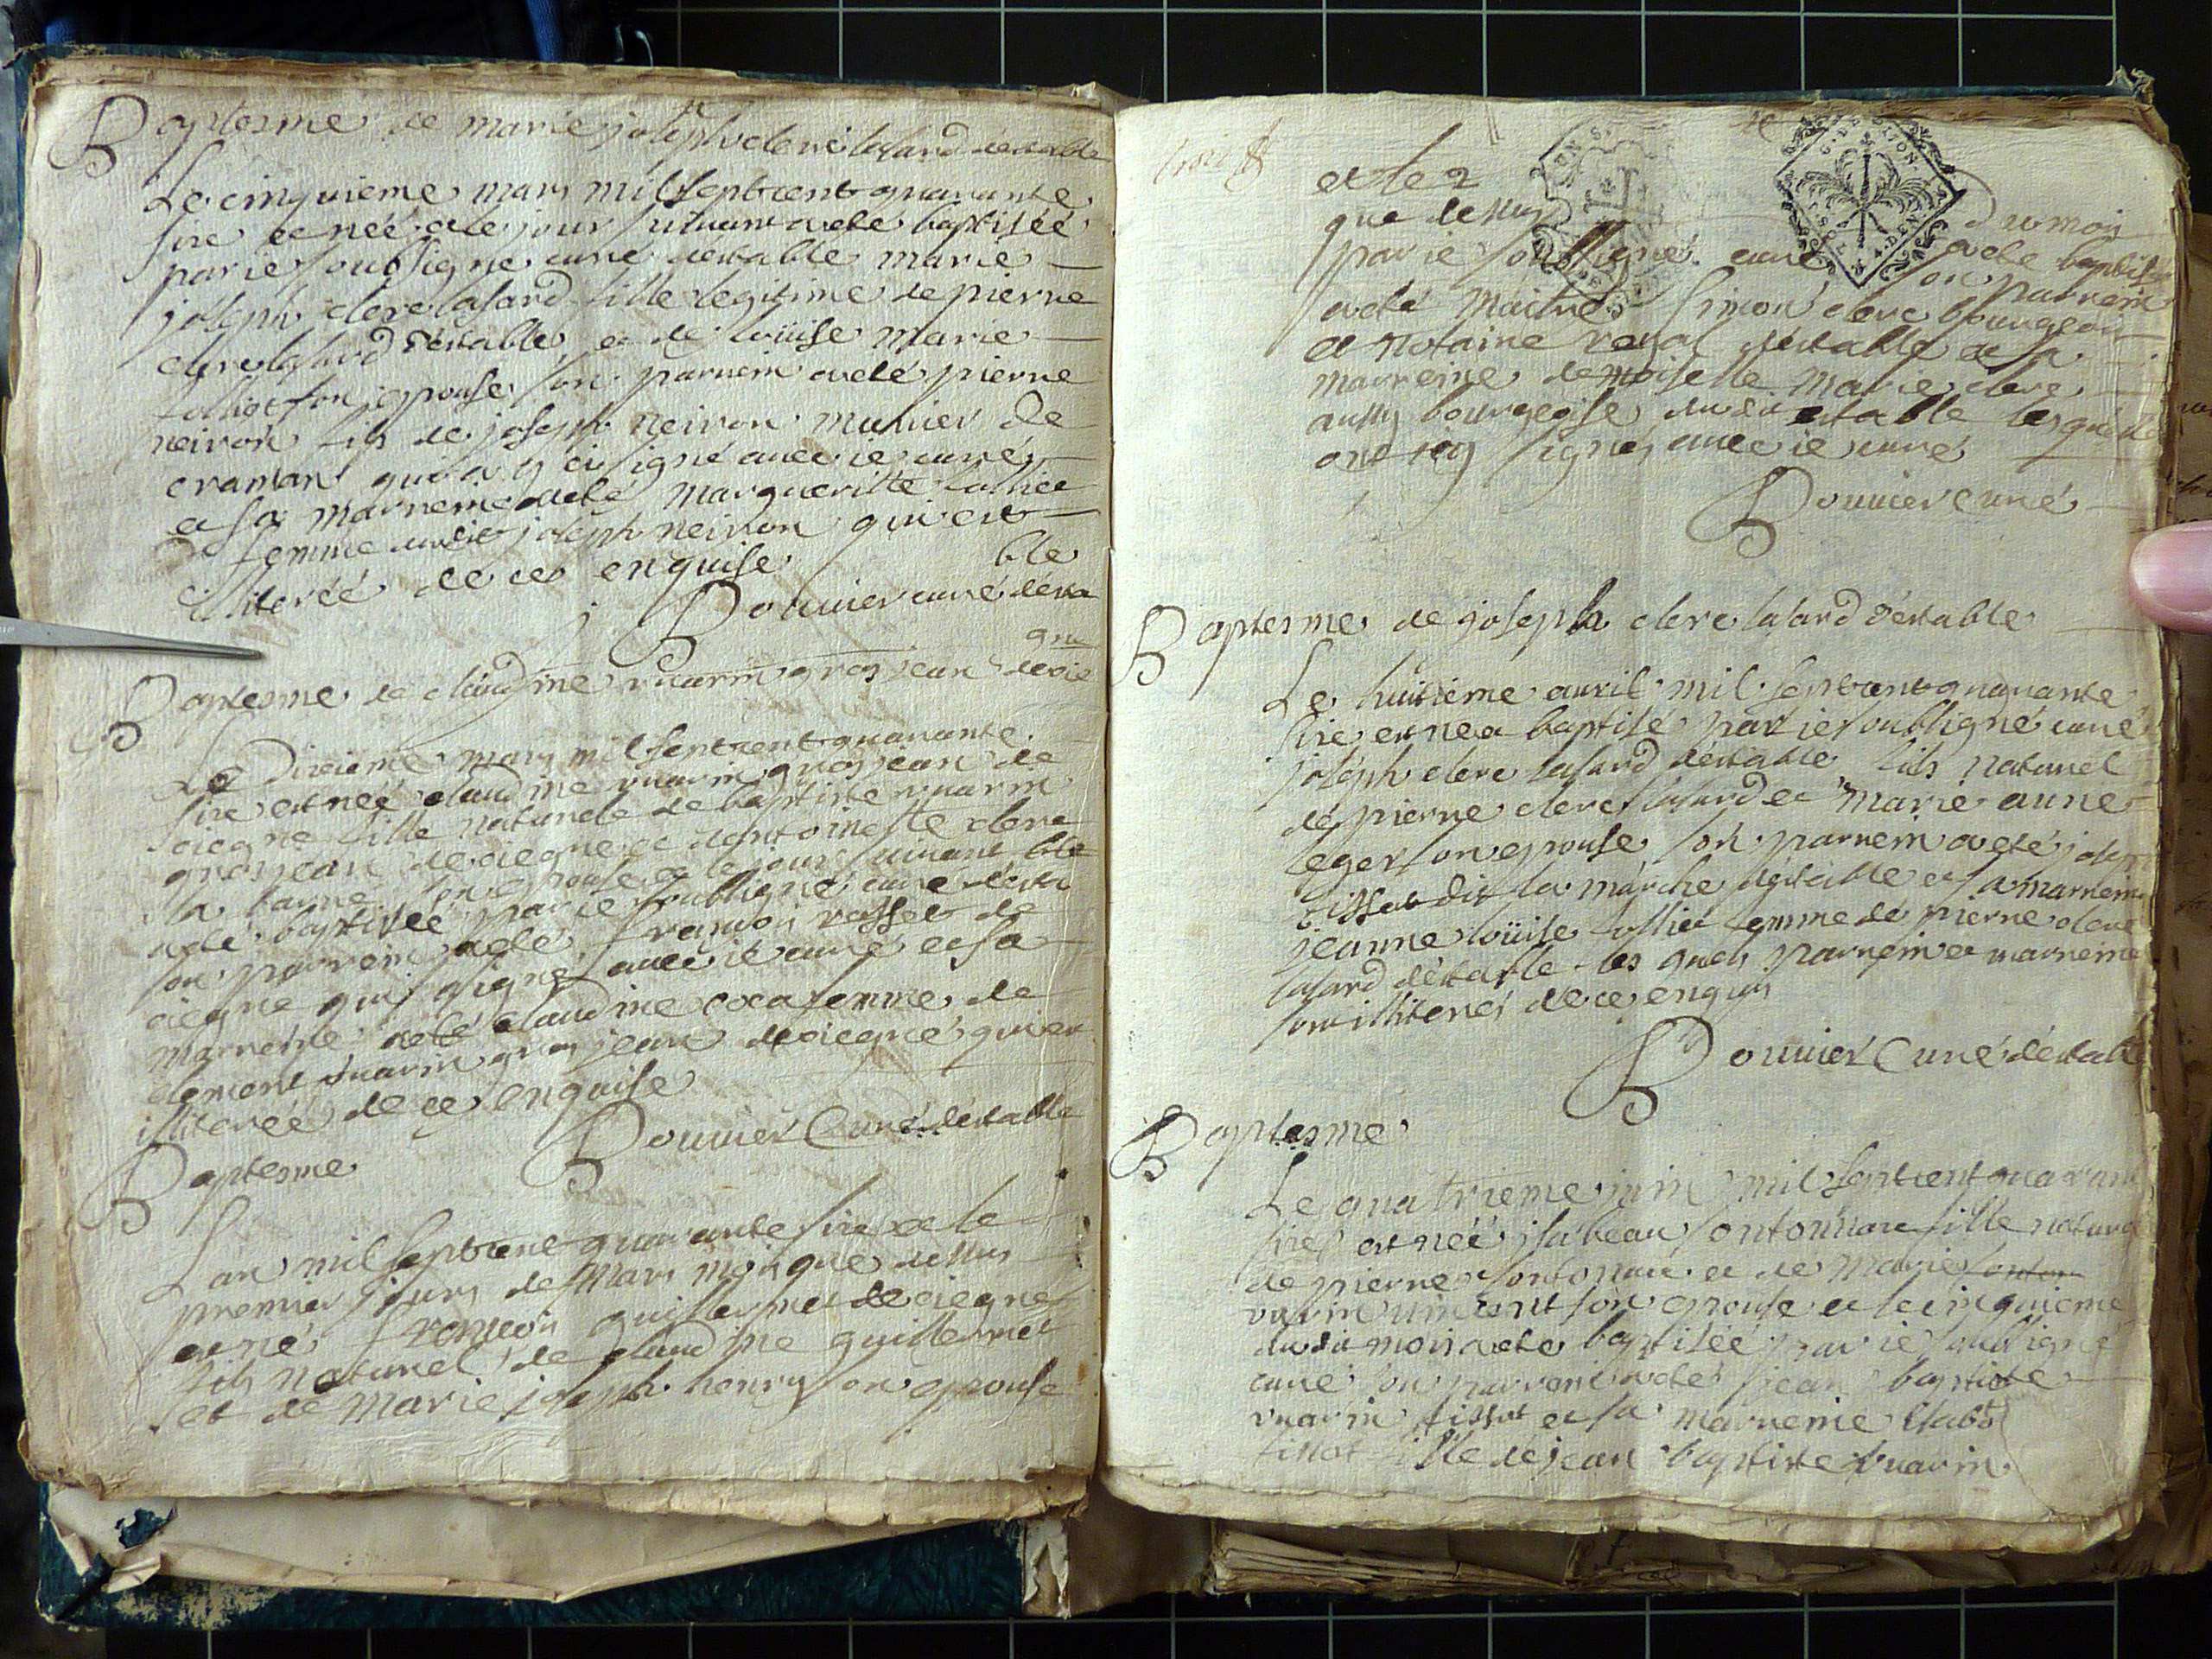 Baptesme de marie joseph clerc lasard détable
Le cinquieme mars mil septcent quarante
sixe et néé et le jour suivant a eté baptiséé
par ie soubsigne curé détable marie
joseph clerc lasard fille legitime de pierre
clerc lasard détable et de loüise marie
son epouse son parrein a eté pierre
neiron fils de joseph neiron munier de
cramans qui a icy signé avec ie curé
et sa marreine a eté margueritte
femme dudit joseph neiron qui est
illiteréé de ce enquise
Bouvier curé déta
ble
Baptesme de claudine vuarin gros jean doie
gne
Le dixieme mars mil septcent quarante
sixe est néé claudine vuarin gros jean de
oiegne fille naturele de baptiste vuarin
gros jean de oiegne et dantoinette clerc
la son epouse et le jour suivant
a eté baptiséé par ie soubsigné curé déta
ble
son parrein a eté françois rosset de
oiegne qui a signé avec ie curé et sa
marreine a eté claudine femme de
clement vuarin gros jean de oiegne qui est
illiteréé de ce enquise
Bouvier Curé détable
Baptesme
Lan mil septcent quarante sixe et le
premier jours de mars mois que dessus
est né françois guillermet de oiegne
fils naturel de claudine guillermet
et de marie joseph henry son epouse
et le 2 du mois
que dessus a eté baptisé
par ie soubsigné curé son parrein
a eté maitre Simon clerc bourgeois
et notaire royal détable et sa
marreine demoiselle marie clerc
aussy bourgeoise dudit etable lesquels
ont icy signes avec ie curé
Bouvier Curé
Baptesme de joseph clerc lasard détable
Le huitieme avril mil septcent quarante
sixe est né et baptisé par ie soubsigné curé
joseph clerc lasard détable fils naturel
de pierre clerc lasard et marie anne
leger son epouse son parrein a eté
tissot dit la marche détable et sa marreine
jeanne loüise femme de pierre clerc
lasard détable les quels parrein et marreine
sont illiterés de ce enquis
Bouvier Curé détabl
Baptesme
Le quatrieme juin mil septcent quarante
sixe est néé isabeau fontonnax fille naturel
de pierre fontonnax et de marie
vuarin vincent son epouse et le cinquieme
dudit mois a eté baptiséé par ie soubsigne
curé son parrein a eté jean baptiste
vuarin tissot et sa marreine
tissot fille de jean baptiste vuarin